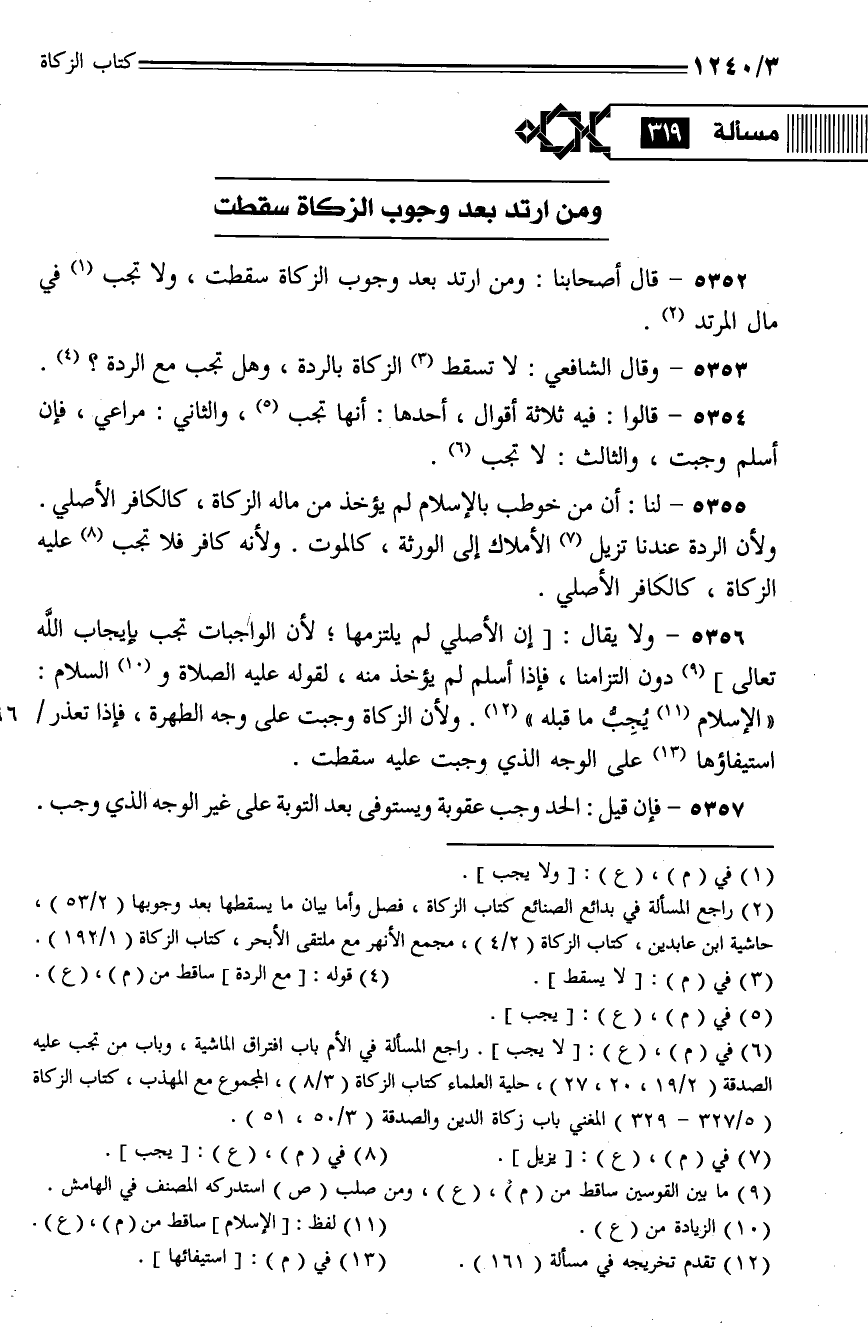 ١٢٤٠/٣ كتاب الزكاة
مسألة ٣١٩
ومن ارتد بعد وجوب الزكاة سقطت
٥٣٥٢ - قال أصحابنا : ومن ارتد بعد وجوب الزكاة سقطت ، ولا تجب (١) في
مال المرتد (٢) .
٥٣٥٣ - وقال الشافعي : لا تسقط (٣) الزكاة بالردة ، وهل تجب مع الردة ؟ (٤) .
٥٣٥٤ - قالوا : فيه ثلاثة أقوال ، أحدها : أنها تجب (٥) ، والثاني : مراعي ، فإن
أسلم وجبت ، والثالث : لا تجب (٦) .
٥٣٥٥ - لنا : أن من خوطب بالإسلام لم يؤخذ من ماله الزكاة ، كالكافر الأصلي .
ولأن الردة عندنا تزيل (٧) الأملاك إلى الورثة ، كالموت . ولأنه كافر فلا تجب (٨) عليه
الزكاة ، كالكافر الأصلي .
٥٣٥٦ - ولا يقال : [ إن الأصلي لم يلتزمها ؛ لأن الواجبات تجب بإيجاب اللَّه
تعالى ] (٩) دون التزامنا ، فإذا أسلم لم يؤخذ منه ، لقوله عليه الصلاة و (١٠) السلام :
« الإسلام (١١) يُجِبُّ ما قبله » (١٢) . ولأن الزكاة وجبت على وجه الطهرة ، فإذا تعذر /
استيفاؤها (١٣) على الوجه الذي وجبت عليه سقطت .
٥٣٥٧ - فإن قيل : الحد وجب عقوبة ويستوفى بعد التوبة على غير الوجه الذي وجب .
(١) في ( م ) ، ( ع ) : [ ولا يجب ] .
(٢) راجع المسألة في بدائع الصنائع كتاب الزكاة ، فصل وأما بيان ما يسقطها بعد وجوبها ( ٥٣/٢ ) ،
حاشية ابن عابدين ، كتاب الزكاة ( ٤/٢ ) ، مجمع الأنهر مع ملتقى الأبحر ، كتاب الزكاة ( ١٩٢/١ ) .
(٣) في ( م ) : [ لا يسقط ] . (٤) قوله : [ مع الردة ] ساقط من ( م ) ، ( ع ) .
(٥) في ( م ) ، ( ع ) : [ يجب ] .
(٦) في ( م ) ، ( ع ) : [ لا يجب ] . راجع المسألة في الأم باب افتراق الماشية ، وباب من تجب عليه
الصدقة ( ١٩/٢ ، ٢٠ ، ٢٧ ) ، حلية العلماء كتاب الزكاة ( ٨/٣ ) ، المجموع مع المهذب ، كتاب الزكاة
( ٣٢٧/٥ - ٣٢٩ ) المغني باب زكاة الدين والصدقة ( ٥٠/٣ ، ٥١ ) .
(٧) في ( م ) ، ( ع ) : [ يزيل ] . (٨) في ( م ) ، ( ع ) : [ يجب ] .
(٩) ما بين القوسين ساقط من ( م ) ، ( ع ) ، ومن صلب ( ص ) استدركه المصنف في الهامش .
(١٠) الزيادة من ( ع ) . (١١) لفظ : [ الإسلام ] ساقط من ( م ) ، ( ع ) .
(١٢) تقدم تخريجه في مسألة ( ١٦١ ) . (١٣) في ( م ) : [ استيفائها ] .